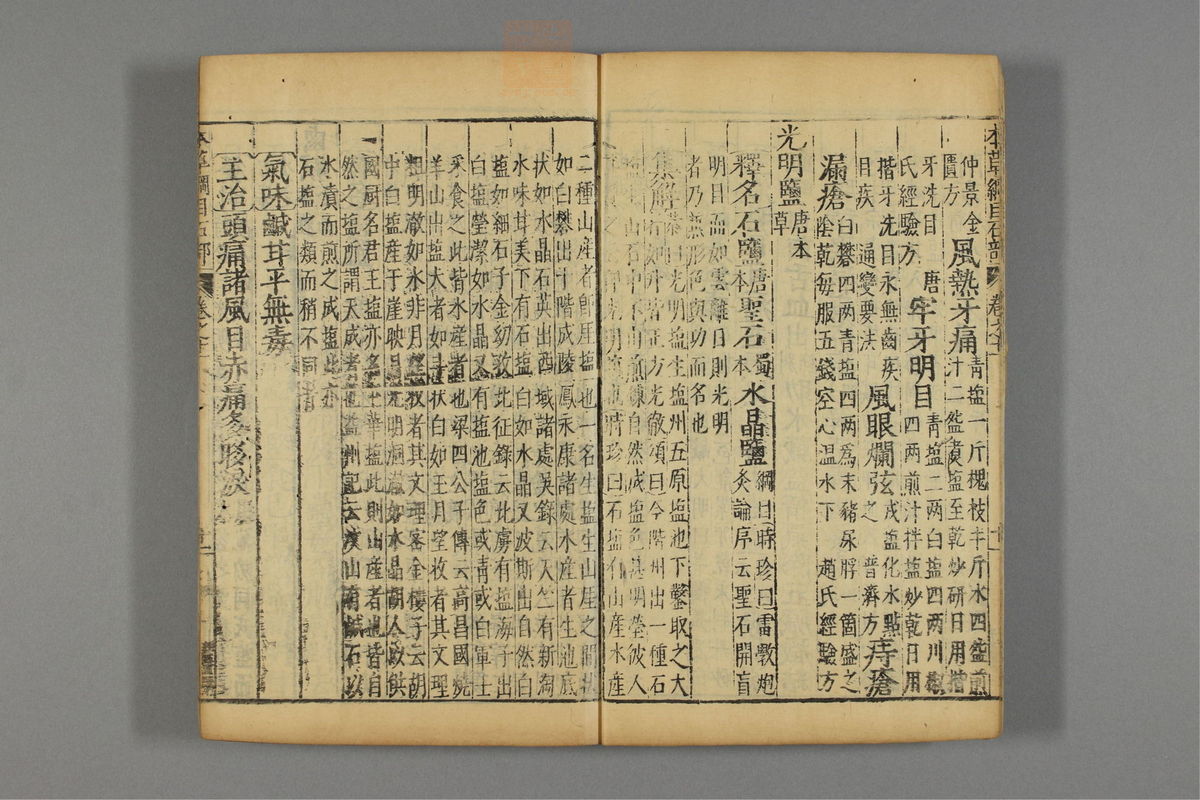 仲景金
匱方
風熱牙痛
青塩一斤槐枝半斤水四盌煎
汁二盌煑塩至乾炒研日用揩
牙洗目
唐
氏經驗方
牢牙明目
青塩二兩白塩四兩川椒
四兩煎汁拌塩炒乾日用
揩牙洗目永無齒疾
目疾
通變要法
風眼爛弦
戎塩化水點
之
普濟方
痔瘡
漏瘡
白礬四兩青塩四兩爲末豬尿脬一箇盛之
陰乾每服五錢空心温水下
趙氏經驗方
光明鹽
唐本
草
釋名石鹽
唐
本
聖石
蜀
本
水晶鹽
綱目時珍曰雷斆炮
炙論序云聖石開盲
明目而如雲離日則光明
者乃無形色與功而名也
集解
恭曰光明塩生塩州五原塩池下鑿取之大
者如升皆正方光徹頌曰今階州出一種石
塩生山石中不由煎鍊自然成塩色甚明瑩彼人
甚貴之云即光明塩也時珍曰石塩有山産水産
二種山産者即厓塩也一名生塩生山厓之間狀
如白礬出于階成陵鳳永康諸處水産者生池底
狀如水晶石英出西域諸處吳錄云天竺有新淘
水味甘美下有石塩白如水晶又波斯出自然白
塩如細石子金幼孜北征錄云北虜有塩海子出
白塩瑩潔如水晶又有塩池塩色或青或白軍士
采食之此皆水産者也梁四公子傳云高昌國燒
羊山出塩大者如斗狀白如玉月望收者其文理
粗明澈如水非月望收者其文理密金樓子云胡
中白塩産于崖映日光明洞澈如水晶胡人以供
國厨名君王塩亦名玉華塩此則山産者也皆自
然之塩所謂天成者也益州記云汶山有鹹石以
水漬而煎之成塩此亦
石塩之類而稍不同者
氣味鹹甘平無毒
主治頭痛諸風目赤痛多眵淚